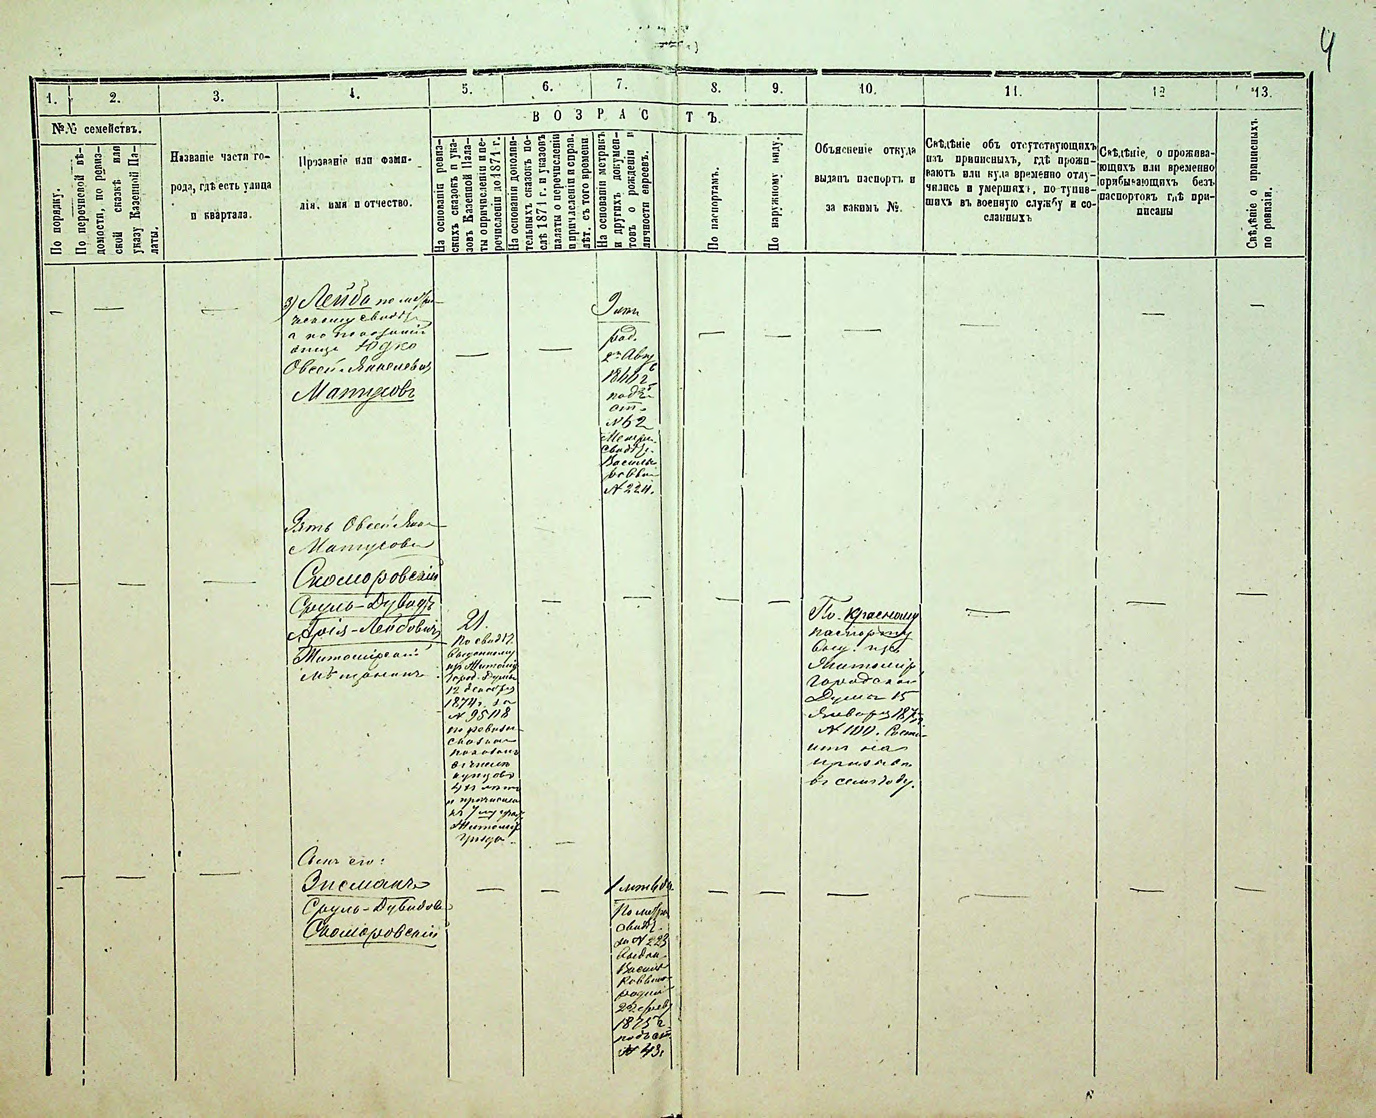 4
1. 2. 3. 4. 5. 6. 7. 8. 9. 10. 11. 12 13.
№№ семействъ.
По порядку.
По перечневой вѣ-
домости, по ревиз-
ской сказкѣ или
указу Казенной Па-
латы.
Названіе части го-
рода, гдѣ есть улица
и квартала.
Прозваніе или фами-
лія, имя и отчество.
ВОЗРАСТЪ.
На основаніи ревиз-
скихъ сказокъ и ука-
зовъ Казенной Пала-
ты о причисленіи и пе-
речисленіи до 1871 г.
На основаніи дополни-
тельныхъ сказокъ по-
слѣ 1871 г. и указовъ
палаты о перечисленіи
и причисленіи и справ.
лѣт. съ того времени.
На основаніи метрик.
и другихъ докумен-
товъ о рожденіи и
личности евреевъ.
По паспортамъ.
По наружному виду.
Объясненіе откуда
выданъ паспортъ и
за какимъ №.
Свѣдѣніе объ отсутствующихъ
изъ приписныхъ, гдѣ прожи-
ваютъ или куда временно отлу-
чились и умершихъ, поступив-
шихъ въ военную службу и со-
сланныхъ
Свѣдѣніе, о прожива-
ющихъ или временно
прибывающихъ безъ
паспортовъ гдѣ при-
писаны
Свѣдѣніе о приписныхъ
по ревизіи.
3) Лейба по метри-
ческому свидѣт.
Юдко
Овсей-Янкелевъ
Матусовъ
9 лѣтъ
род.
2го Авгу
186
подъ
ст.
№ 62
Метри.
свидѣт.
Василь
№ 224.
Зять Овсей Янк
Матусова
Скоморовскій
Сруль-Дувидъ
Арія-Лейбовичъ
Житомірскій
мѣщанинъ
21.
По свидѣт.
выданному
изъ Житомір
город. Думы
12 декабря
1874 г. за
№ 9508
по ревизс
сказкѣ
показанъ
въ числѣ
купцовъ
4 лѣтъ
и причислен
Житомір
По красному
паспорту
выд. изъ
Житомір
городской
Думы 15
Января 187
№ 100.
въ семъ году.
Сынъ его:
Зисманъ
Сруль-Дувидовъ
Скоморовскій
По метри
свидѣт.
за № 223
выдан
Василь
ковско
радин
22 февр
1875 г.
подъ ст.
№ 43.